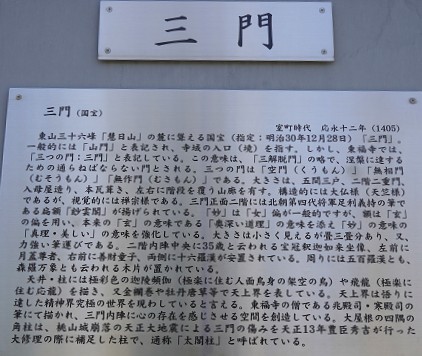 三門
三門(国宝)
室町時代 応永十二年(1405)
東山三十六峰「慧日山」の麓に聳える国宝(指定:明治30年12月28日)「三門」。
一般的には「山門」と表記され、寺域の入口(境)を指す。しかし、東福寺では、
「三つの門:三門」と表記している。この意味は、「三解脱門」の略で、涅槃に達する
ための通らねばならない門とされる。三つの門は「空門(くうもん)」「無相門
(むそうもん)」「無作門(むさもん)」である。大きさは、五間三戸、二階二重門、
入母屋造り、本瓦葺き、左右に階段を覆う山廊を有す。構造的には大仏様(天竺様)
であるが、視覚的には禅宗様である。三門正面二階には北朝第四代将軍足利義持の筆で
ある扁額「妙雲閣」が掲げられている。「妙」は「女」偏が一般的ですが、額は「玄」
の偏を用い、本来の「玄」の意味である「奥深い道理」の意味を添え「妙」の意味の
「真理・美しい」の意味を強化している。大きさは小さく見えるが畳三畳分あり、又、
力強い筆運びである。二階内陣中央に35歳と云われる宝冠釈迦如来坐像、左前に
月蓋尊者、右前に善財童子、両側に十六羅漢が安置されている。周りには五百羅漢とも、
森羅万象とも云われる木片が置かれている。
天井・柱には極彩色の迦陵頻伽(極楽に住む人面鳥身の架空の鳥)や飛龍(極楽に
住む応龍)を描き、又金襴巻や牡丹唐草等で天上界を表している。天上界は悟りに
達した精神界究極の世界を現わしていると言える。東福寺の僧である兆殿司・寒殿司の
筆にて描かれ、三門内陣に心の存在を感じさせる空間を創造している。大屋根の四隅の
角柱は、桃山城崩落の天正大地震による三門の傷みを天正13年豊臣秀吉が行った
大修理の際に補足した柱で、通称「太閤柱」と呼ばれている。